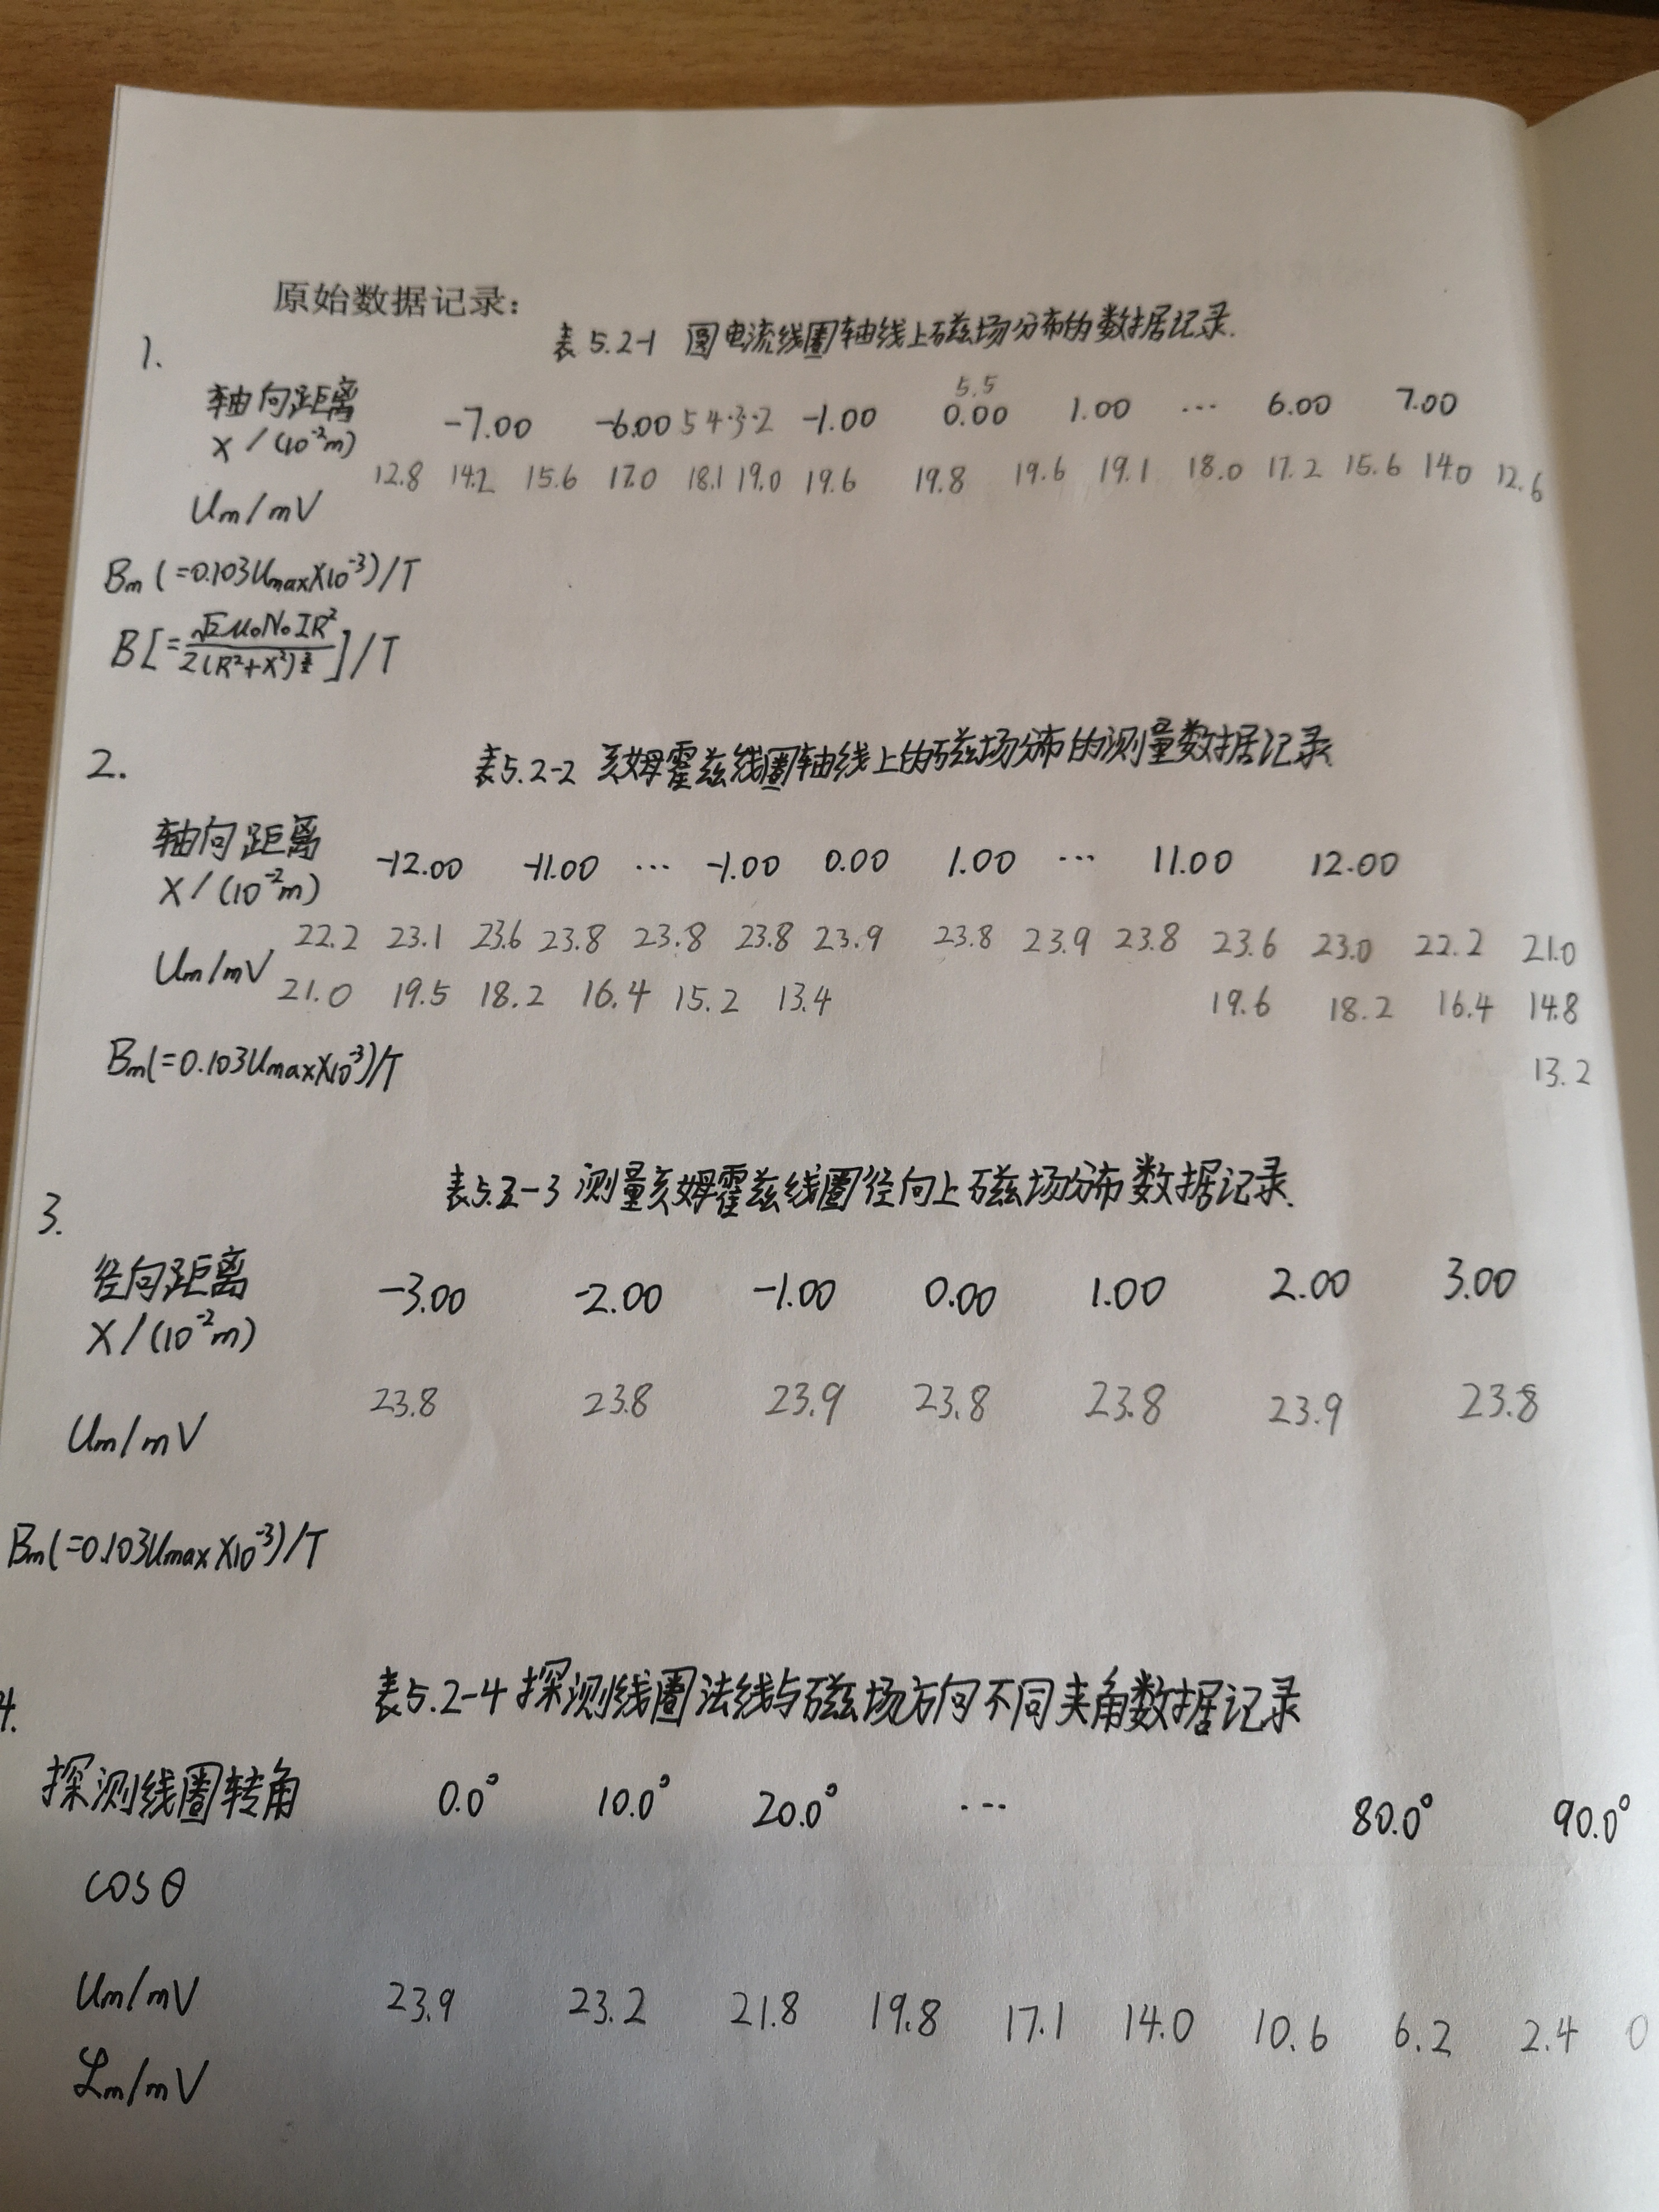 原始数据记录:
1.
表5.2-1 圆电流线圈轴线上磁场分布的数据记录.
轴向距离 X/(10⁻²m) -7.00 -6.00 5 4·3·2 -1.00 0.00 1.00 ··· 6.00 7.00
5.5
12.8 14.2 15.6 17.0 18.1 19.0 19.6 19.8 19.6 19.1 18.0 17.2 15.6 14.0 12.6
Um/mV
Bm(=0.103Umax×10⁻³)/T
B[=√2μ₀N₀IR²/2(R²+X²)^(3/2)]/T
2.
表5.2-2 亥姆霍兹线圈轴线上的磁场分布的测量数据记录
轴向距离 X/(10⁻²m) -12.00 -11.00 ··· -1.00 0.00 1.00 ··· 11.00 12.00
Um/mV 22.2 23.1 23.6 23.8 23.8 23.8 23.9 23.8 23.9 23.8 23.6 23.0 22.2 21.0
21.0 19.5 18.2 16.4 15.2 13.4 19.6 18.2 16.4 14.8
13.2
Bm(=0.103Umax×10⁻³)/T
3.
表5.2-3 测量亥姆霍兹线圈径向上磁场分布数据记录.
径向距离 X/(10⁻²m) -3.00 -2.00 -1.00 0.00 1.00 2.00 3.00
Um/mV 23.8 23.8 23.9 23.8 23.8 23.9 23.8
Bm(=0.103Umax×10⁻³)/T
4.
表5.2-4 探测线圈法线与磁场方向不同夹角数据记录
探测线圈转角 0.0° 10.0° 20.0° ··· 80.0° 90.0°
cosθ
Um/mV 23.9 23.2 21.8 19.8 17.1 14.0 10.6 6.2 2.4 0
ℒm/mV